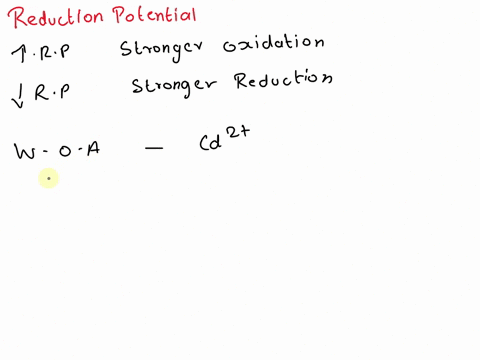 Reduction Potential
↑ . R . P Stronger Oxidation
↓ R . P Stronger Reduction
W - O - A — Cd²⁺